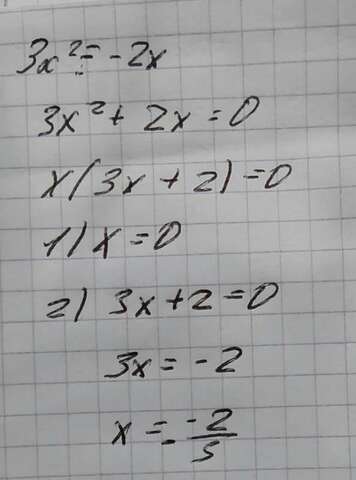 3x² = -2x
3x² + 2x = 0
x(3x + 2) = 0
1) x = 0
2) 3x + 2 = 0
3x = -2
x = -2/5